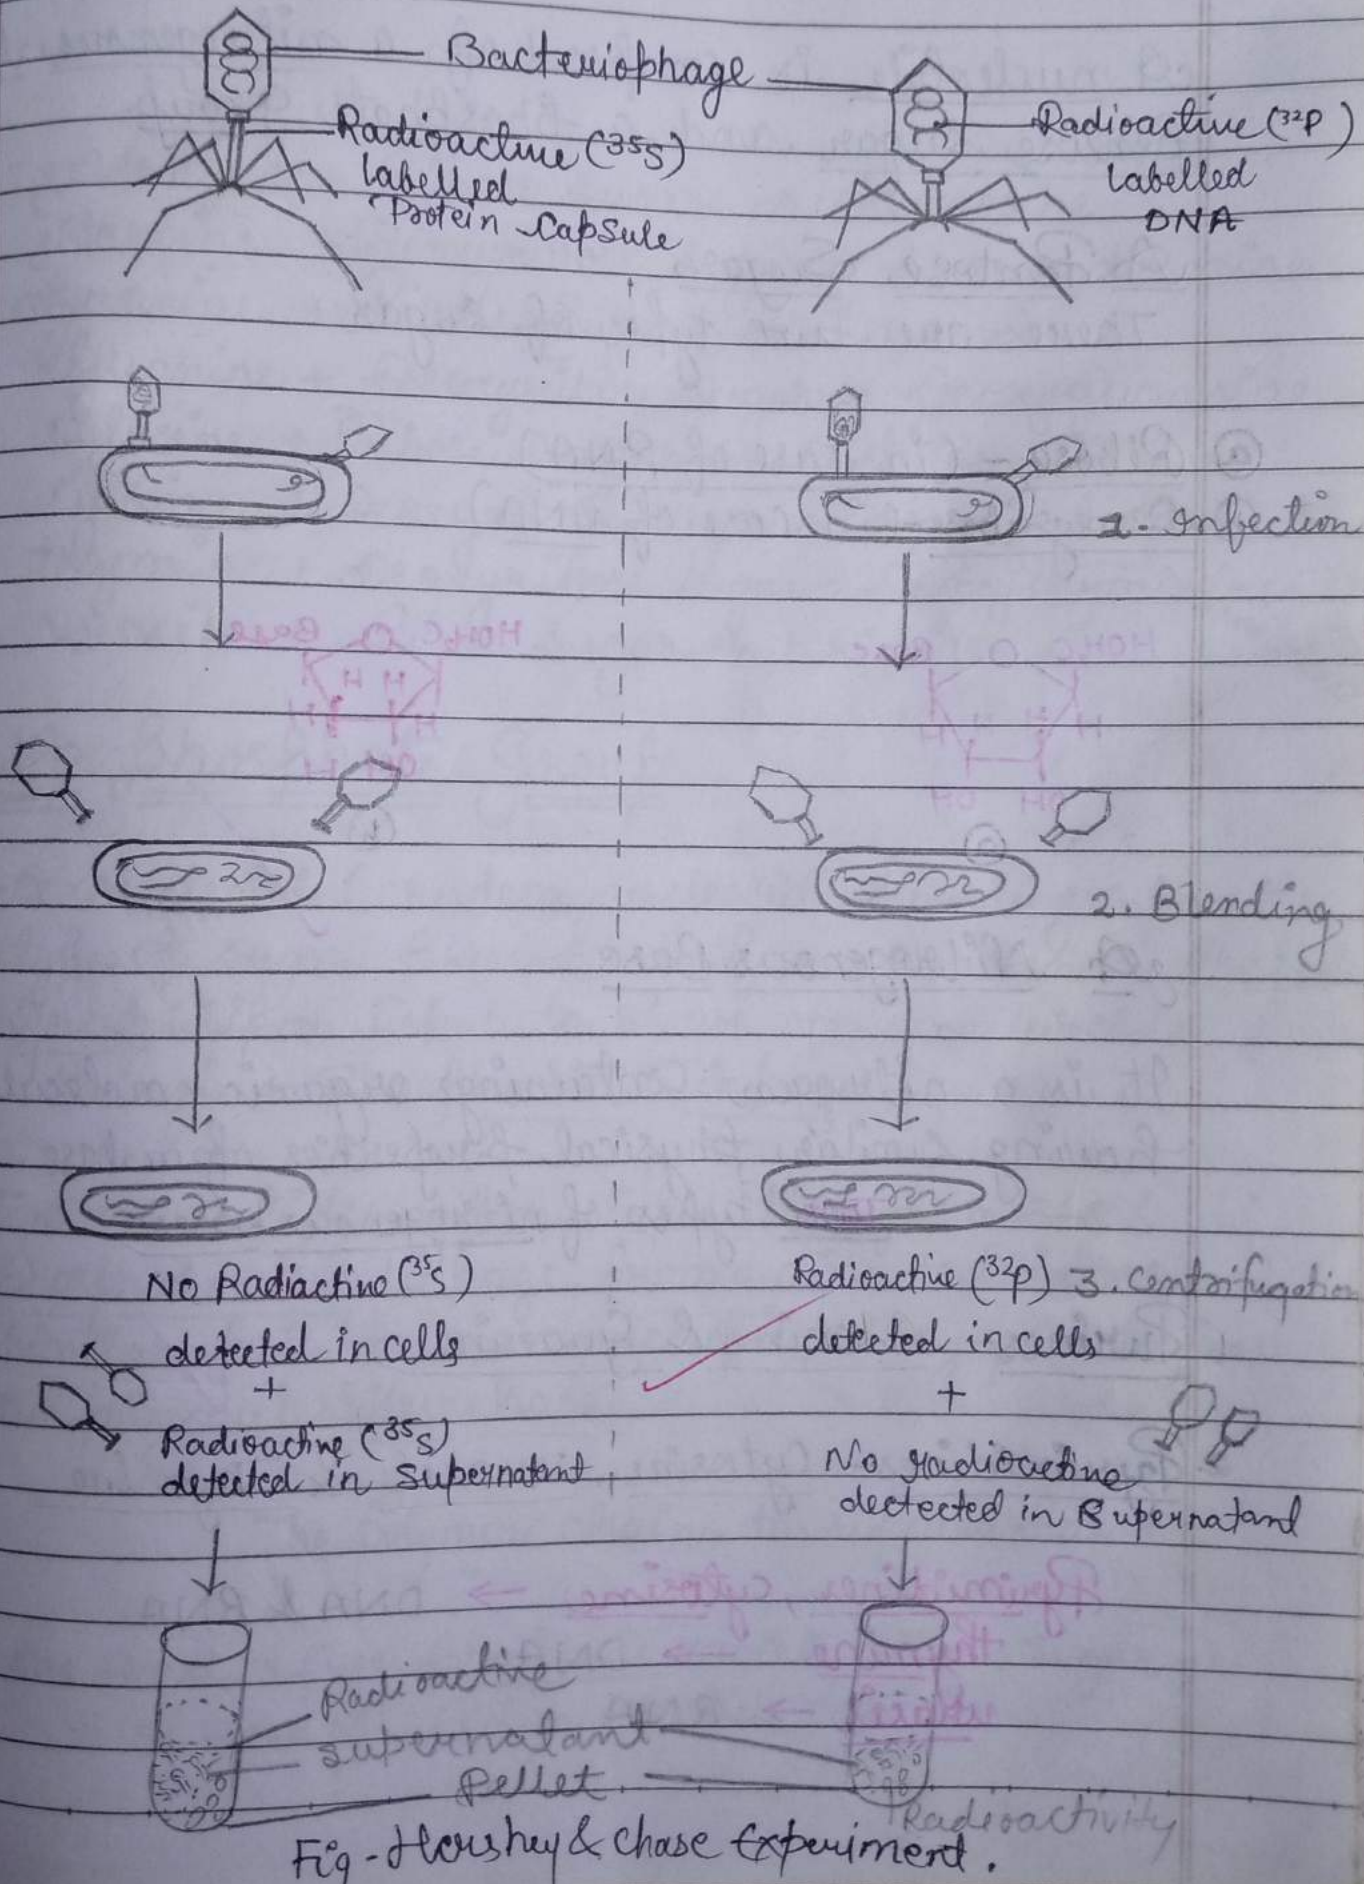 Bacteriophage
Radioactive (35S)
labelled
Protein Capsule
Radioactive (32P)
labelled
DNA
1. Infection
2. Blending
No Radiactive (35S)
detected in cells
+
Radioactive (35S)
detected in supernatant
Radioactive (32P)
detected in cells
+
No radioactive
dectected in Supernatand
3. Centrifugation
Radioactive
supernatant
Pellet
Radioactivity
Fig - Hershey & chase Experiment.